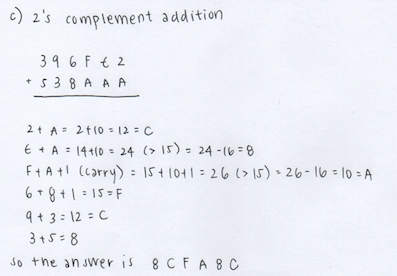 c) 2's complement addition
3 9 6 F E 2
+ 5 3 8 A A A
2 + A = 2+10 = 12 = C
E + A = 14+10 = 24 (> 15) = 24 - 16 = 8
F + A + 1 (carry) = 15 + 10 + 1 = 26 (> 15) = 26 - 16 = 10 = A
6 + 8 + 1 = 15 = F
9 + 3 = 12 = C
3 + 5 = 8
so the answer is 8 C F A 8 C